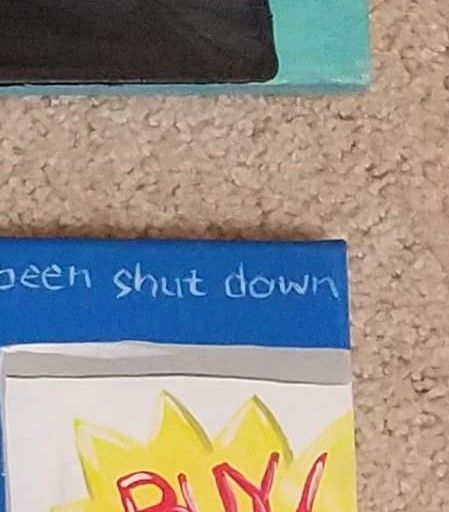 been shut down
BUY!